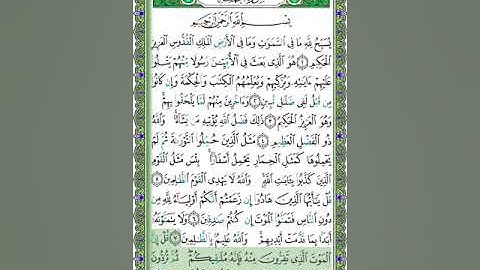 بِسْمِ اللَّهِ الرَّحْمَٰنِ الرَّحِيمِ
يُسَبِّحُ لِلَّهِ مَا فِي السَّمَٰوَٰتِ وَمَا فِي الْأَرْضِ الْمَلِكِ الْقُدُّوسِ الْعَزِيزِ
الْحَكِيمِ ۝١ هُوَ الَّذِي بَعَثَ فِي الْأُمِّيِّۦنَ رَسُولًا مِّنْهُمْ يَتْلُوا
عَلَيْهِمْ ءَايَٰتِهِۦ وَيُزَكِّيهِمْ وَيُعَلِّمُهُمُ الْكِتَٰبَ وَالْحِكْمَةَ وَإِن كَانُوا
مِن قَبْلُ لَفِي ضَلَٰلٍ مُّبِينٍ ۝٢ وَءَاخَرِينَ مِنْهُمْ لَمَّا يَلْحَقُوا بِهِمْ
وَهُوَ الْعَزِيزُ الْحَكِيمُ ۝٣ ذَٰلِكَ فَضْلُ اللَّهِ يُؤْتِيهِ مَن يَشَآءُ وَاللَّهُ
ذُو الْفَضْلِ الْعَظِيمِ ۝٤ مَثَلُ الَّذِينَ حُمِّلُوا التَّوْرَىٰةَ ثُمَّ لَمْ
يَحْمِلُوهَا كَمَثَلِ الْحِمَارِ يَحْمِلُ أَسْفَارًا بِئْسَ مَثَلُ الْقَوْمِ
الَّذِينَ كَذَّبُوا بِـَٔايَٰتِ اللَّهِ وَاللَّهُ لَا يَهْدِي الْقَوْمَ الظَّٰلِمِينَ ۝٥
قُلْ يَٰٓأَيُّهَا الَّذِينَ هَادُوٓا إِن زَعَمْتُمْ أَنَّكُمْ أَوْلِيَآءُ لِلَّهِ مِن
دُونِ النَّاسِ فَتَمَنَّوُا الْمَوْتَ إِن كُنتُمْ صَٰدِقِينَ ۝٦ وَلَا يَتَمَنَّوْنَهُۥٓ
أَبَدًۢا بِمَا قَدَّمَتْ أَيْدِيهِمْ وَاللَّهُ عَلِيمٌۢ بِالظَّٰلِمِينَ ۝٧ قُلْ إِنَّ
الْمَوْتَ الَّذِي تَفِرُّونَ مِنْهُ فَإِنَّهُۥ مُلَٰقِيكُمْ ثُمَّ تُرَدُّونَ